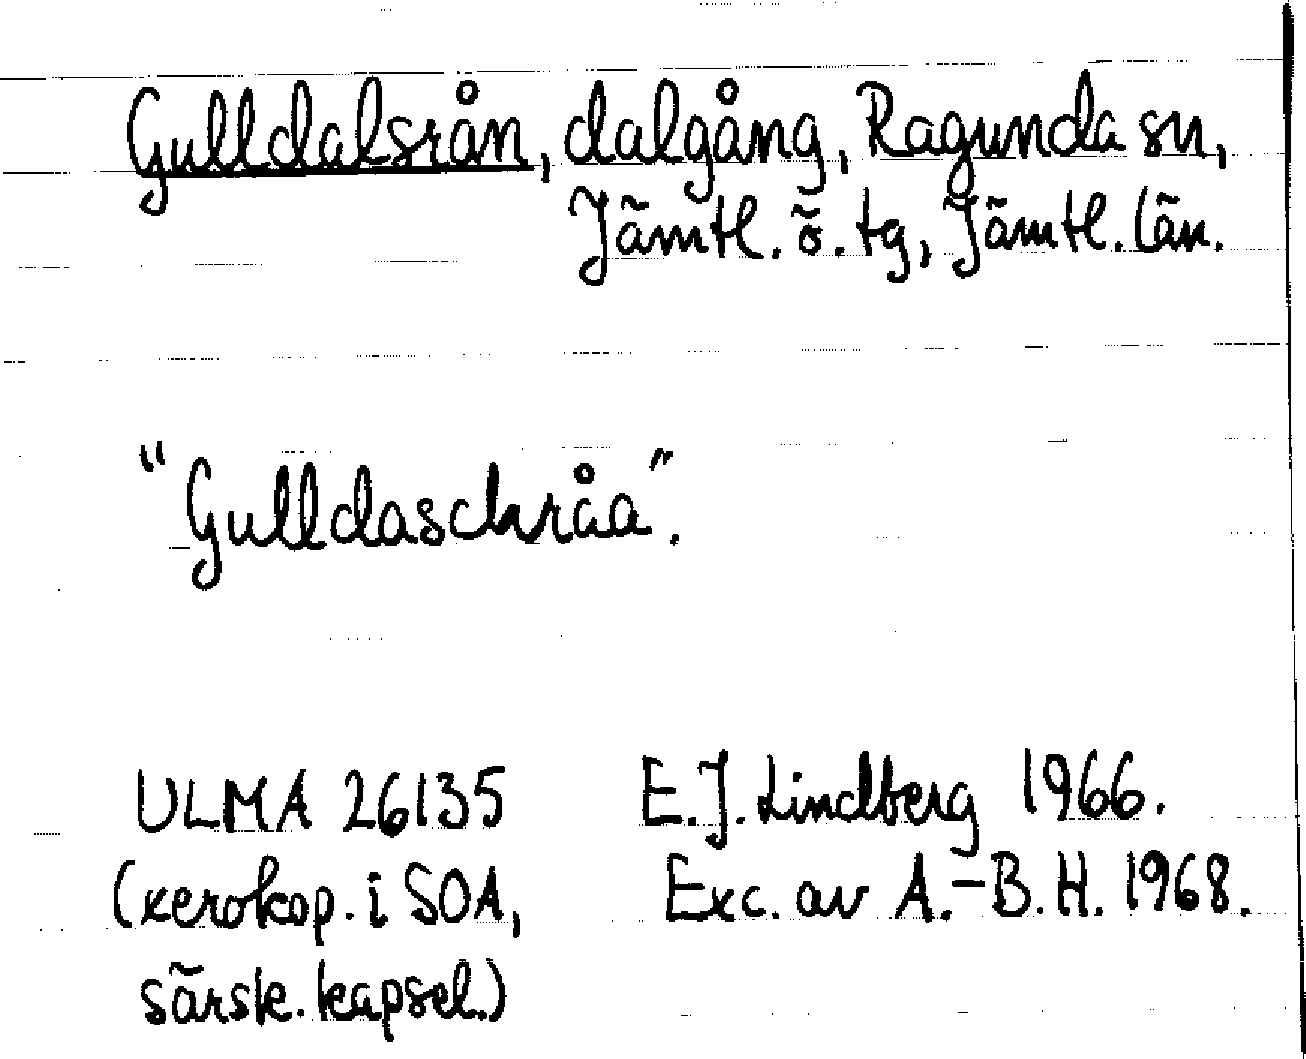 Gulldalsrån, dalgång, Ragunda sn,
Jämtl. ö. tg, Jämtl. län.
"Gulldaschråa".
ULMA 26135 E.J. Lindberg 1966.
(xerokop. i SOA, Exc. av A.-B.H. 1968.
särsk. kapsel.)